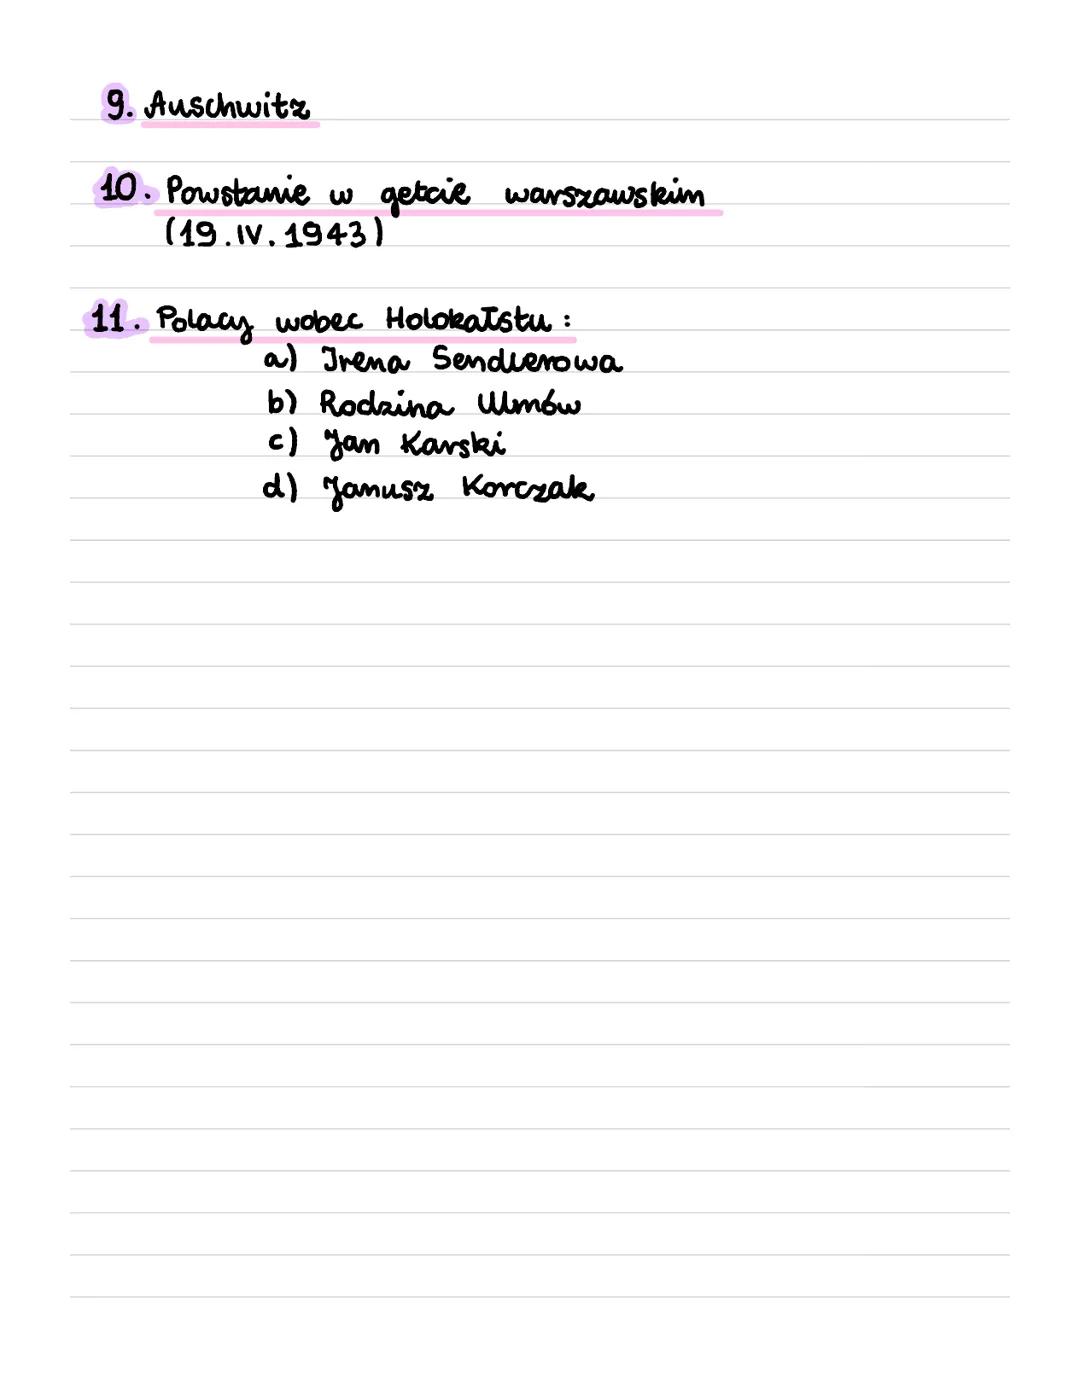 9. Auschwitz
10. Powstanie w getcie warszawskim
(19.IV.1943)
11. Polacy wobec Holokaustu:
a) Irena Sendlerowa
b) Rodzina Ulmów
c) Jan Karski
d) Janusz Korczak